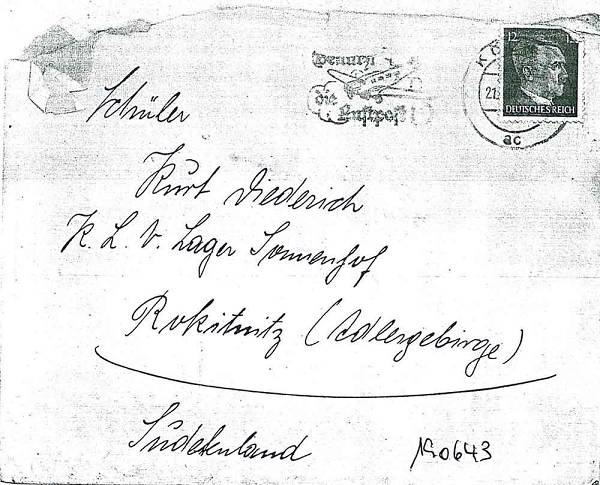 Benutzt
die
Luftpost
12
DEUTSCHES REICH
KÖ
21.
ac
Schüler
Kurt Diederich
K. L. V. Lager Sonnenhof
Rokitnitz (Adlergebirge)
Sudetenland